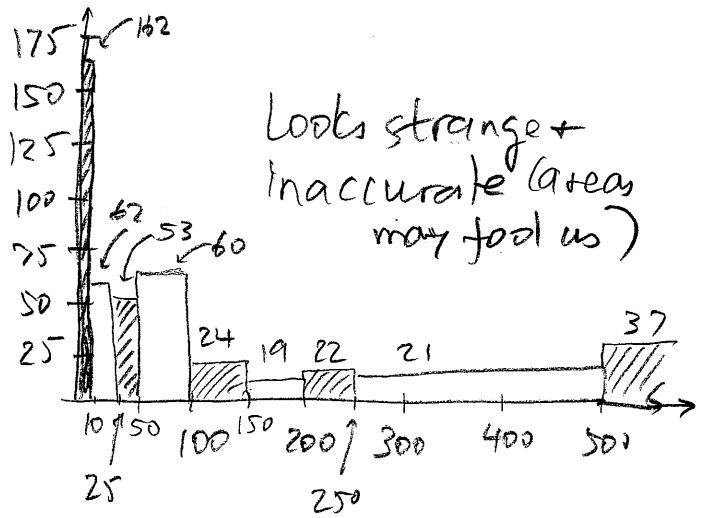 175
162
150
125
100
75
50
25
62
53
60
24
19
22
21
37
Looks strange +
inaccurate (areas
may fool us)
10
25
50
100
150
200
250
300
400
500